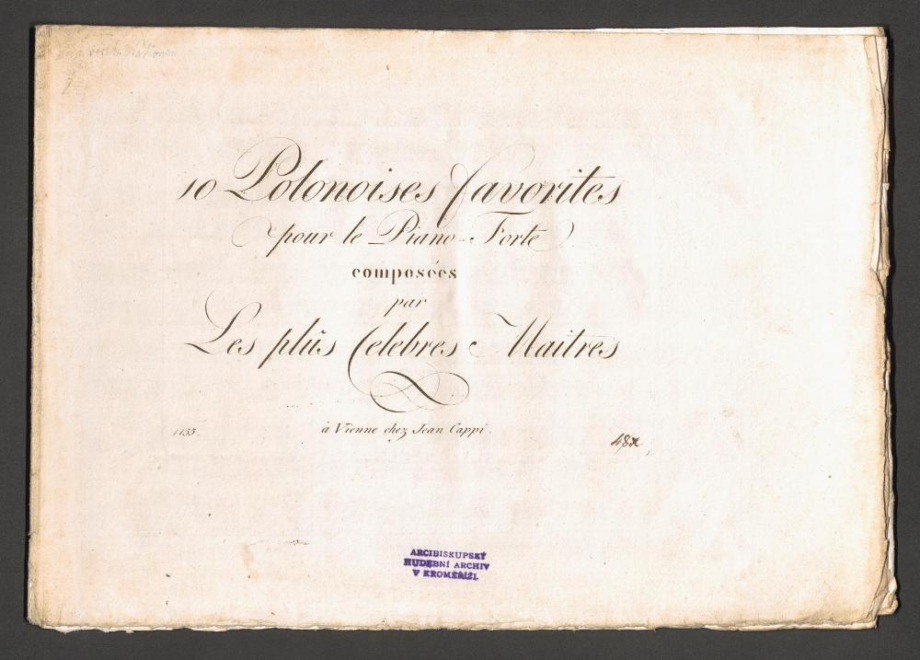 10 Polonoises favorites
pour le Piano-Forte
composées
par
Les plûs Celebres Maitres
à Vienne chez Jean Cappi.
1155.
48x
ARCIBISKUPSKÝ
HUDEBNÍ ARCHIV
V KROMĚŘÍŽI.